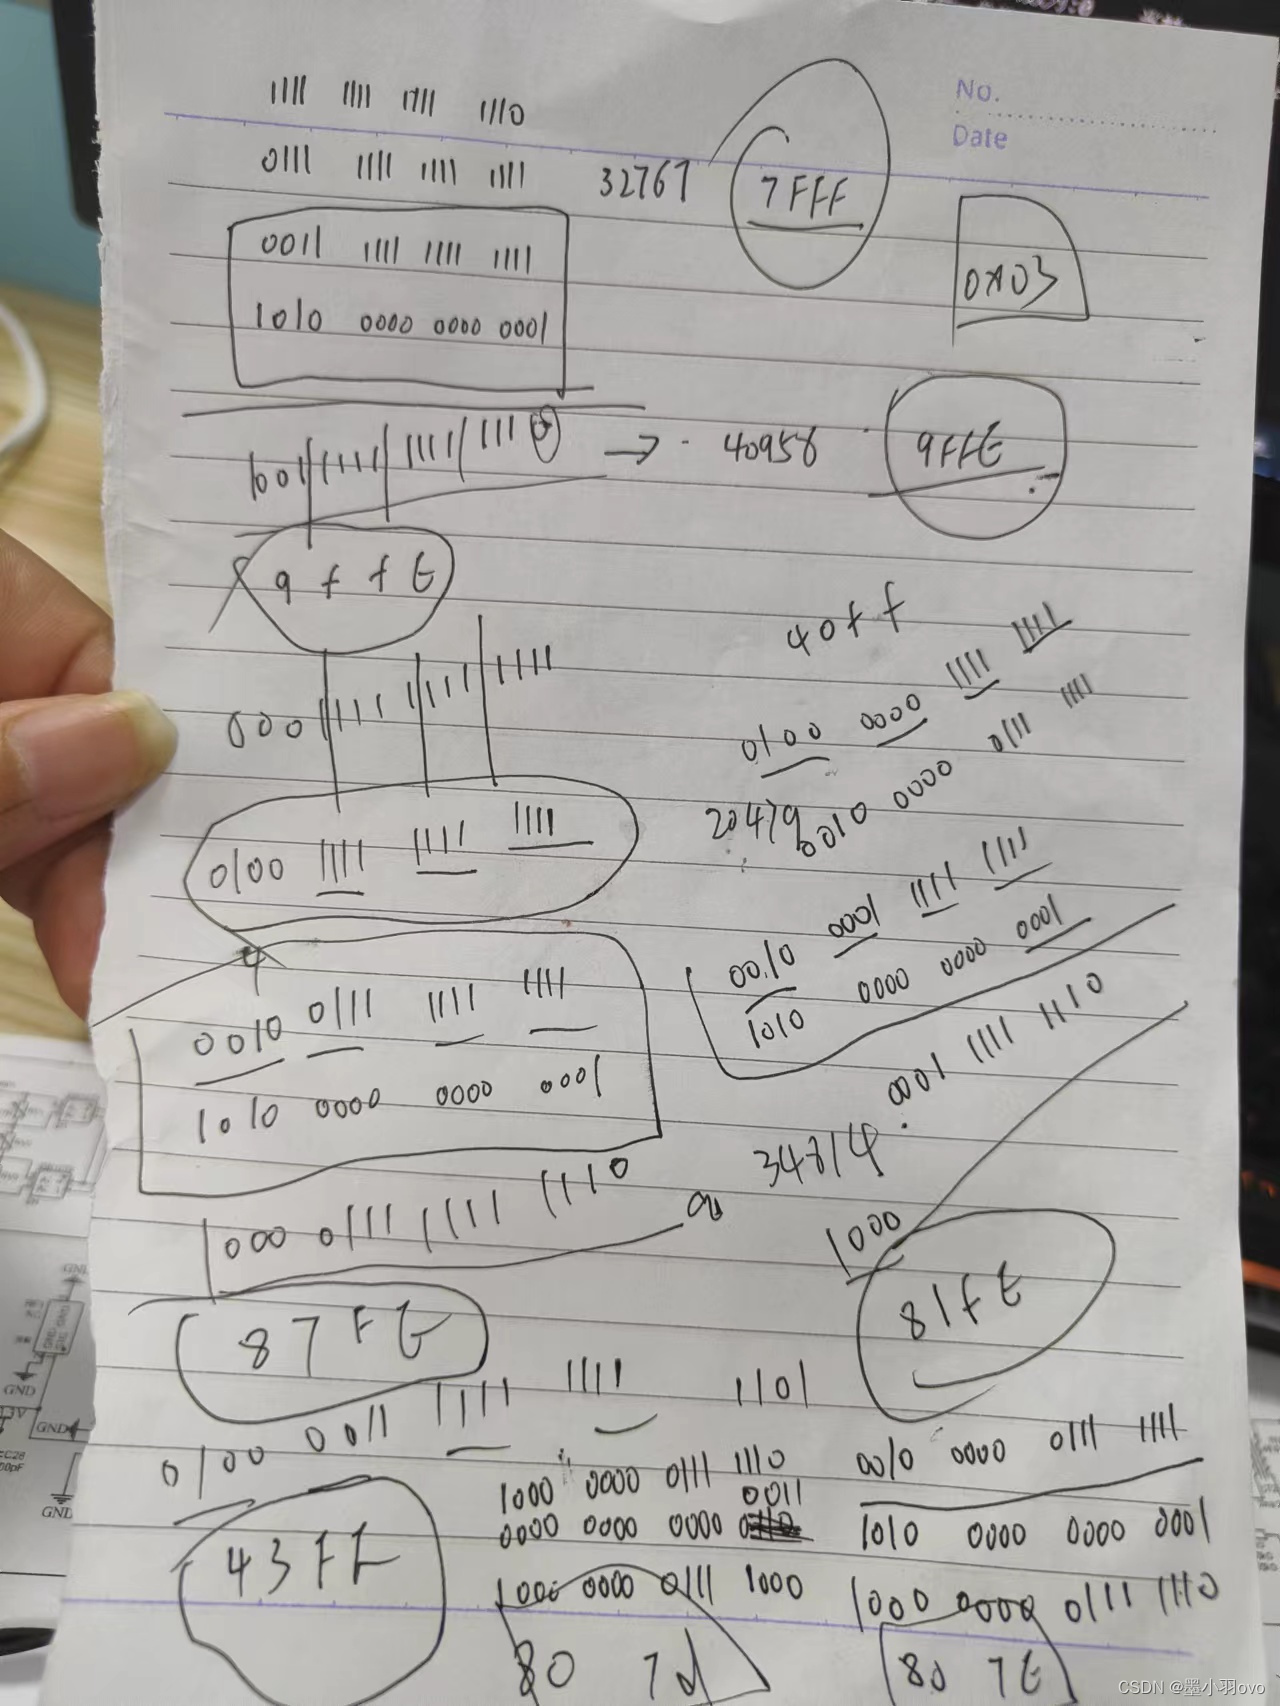 1111 1111 1111 1110
No.
Date
0111 1111 1111 1111 32767 7FFF
0011 1111 1111 1111
0x03
1010 0000 0000 0001
1001 1111 1111 1110 → 40958 9FFE
9 f f E
40ff
0001 1111 1111 1111
0100 0000 1111 1111
0100 1111 1111 1111
20479
0010 0000 0111 1111
0010 0001 1111 1111
1010 0000 0000 0001
0010 0111 1111 1111
1010 0000 0000 0001
0001 1111 1110
34814
1000
1000 0111 1111 1110
81fE
87FE
0100 0011 1111 1111 1101
43FF
1000 0000 0111 1110
0011
0000 0000 0000
1000 0000 0111 1000
80 7d
0010 0000 0111 1111
1010 0000 0000 0001
1000 0000 0111 1110
80 7E
CSDN @墨小羽ovo